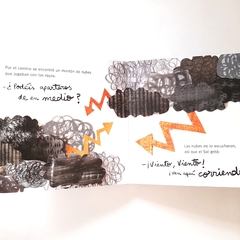 Por el camino se encontró un montón de nubes
que jugaban con los rayos.
-¿Podéis apartaros
de en medio?
Las nubes no lo escucharon,
así que el Sol gritó:
-¡Viento, Viento!
¡Ven aquí corriendo